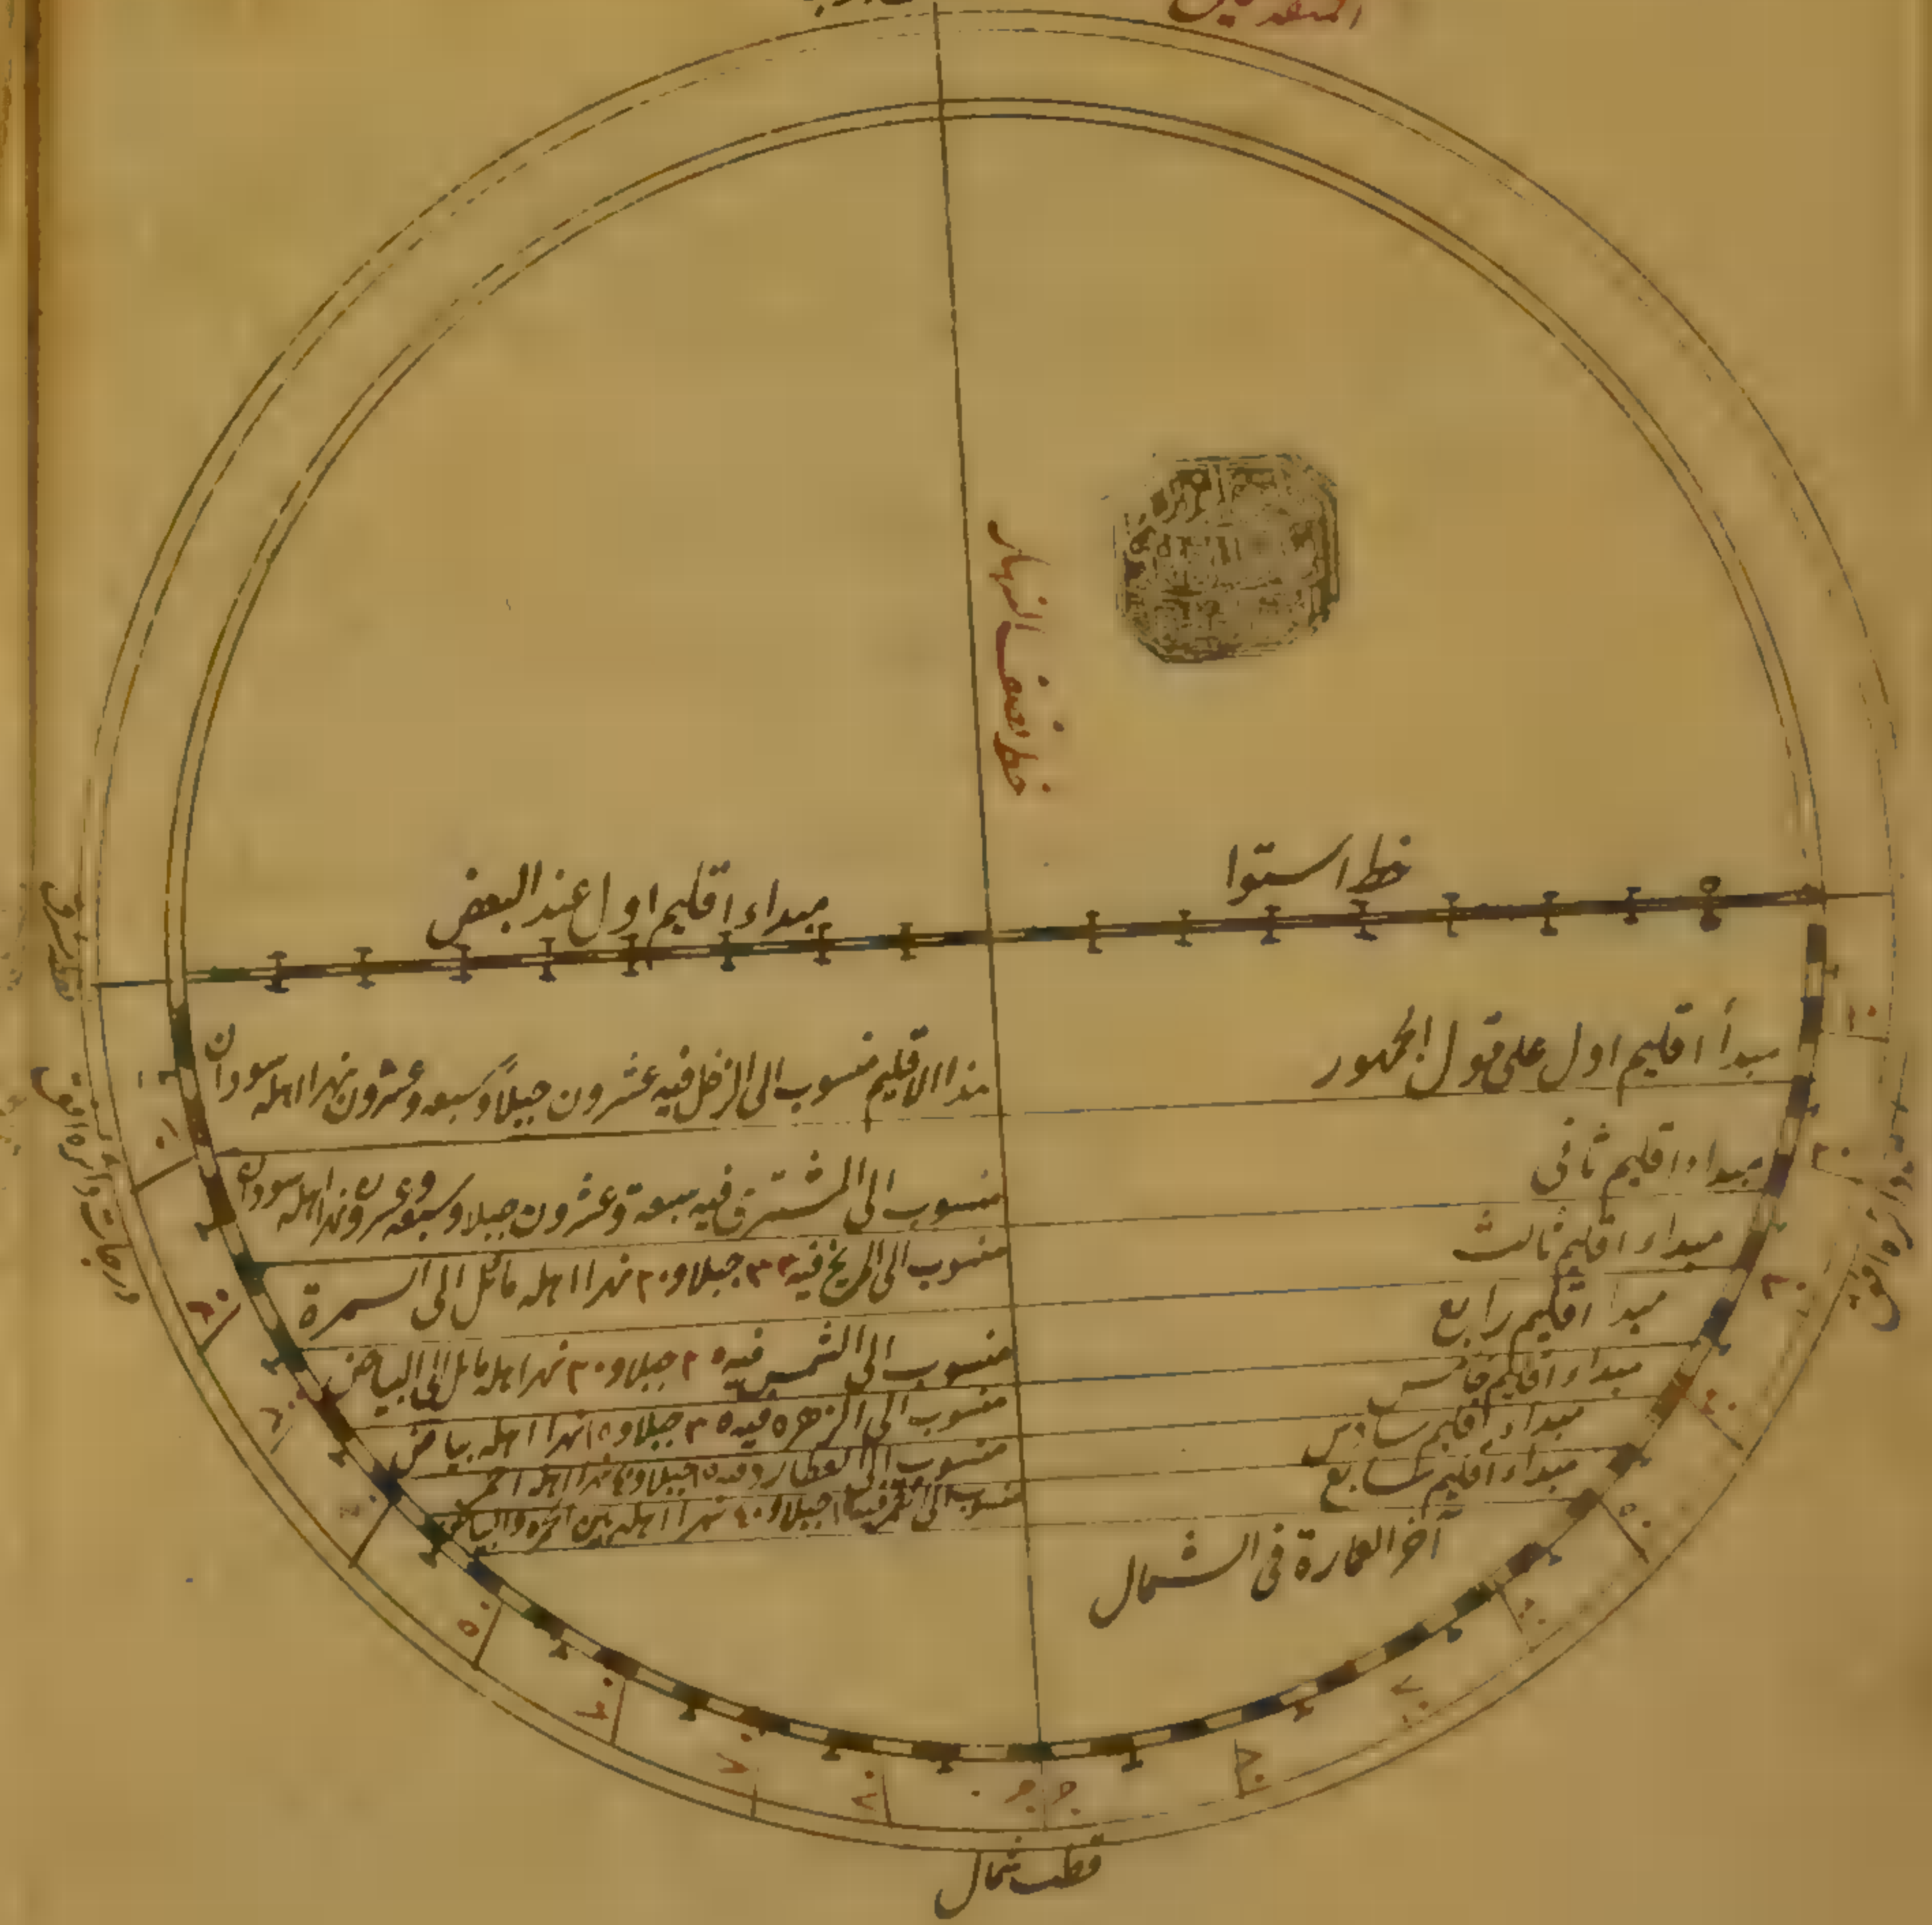 خط نصف النهار
خط استوا
مبداء اقليم اول عند البعض
مبدأ اقليم اول على قول الجمهور
هذا الاقليم منسوب الى الزحل فيه عشرون جبلاً وسبعه وعشرون نهرا اهله سودان
مبداء اقليم ثانى
منسوب الى المشترى فيه سبعة وعشرون جبلا وسبعه وعشرون نهرا اهله سودان
مبداء اقليم ثالث
منسوب الى المريخ فيه ٣٣ جبلا و٢٠ نهرا اهله مائل الى السمرة
مبدا اقليم رابع
منسوب الى الشمس فيه ٢٠ جبلا و٢٠ نهرا اهله مائل الى البياض
مبداء اقليم خامس
منسوب الى الزهره فيه ٣٠ جبلا و١٥ نهرا اهله بياض
مبداء اقليم سادس
منسوب الى العطارد فيه جبلا نهرا اهله
مبداء اقليم سابع
منسوب الى القمر فيه جبلا و٤٠ نهرا اهله بين
آخر العمارة فى الشمال
قطب شمال
درجات دائره افق
دائره افق
١٠
٢٠
٣٠
٤٠
٥٠
٦٠
٧٠
٨٠